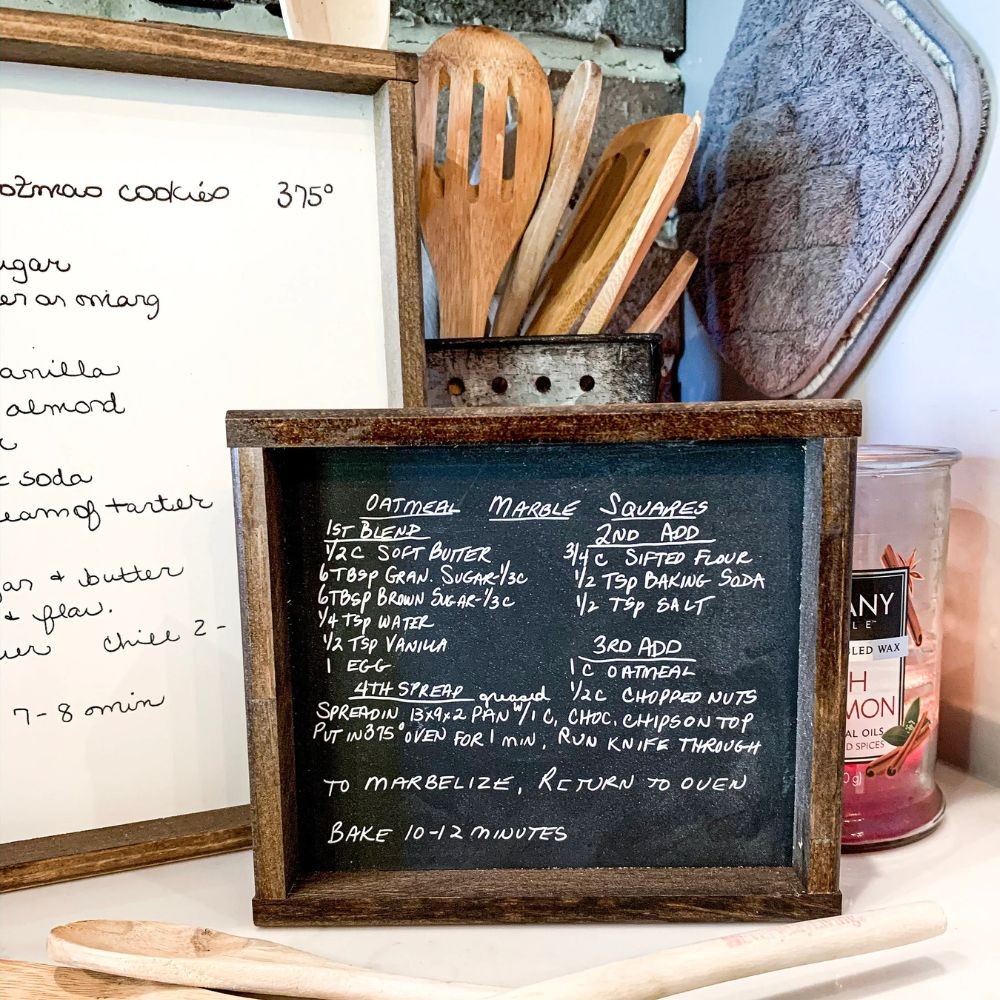 cookies 375°
or marg
almond
soda
tarter
+ butter
+ flav.
Chill 2-
7-8 min
OATMEAL MARBLE SQUARES
1ST BLEND
1/2 C SOFT BUTTER
6 TBSP GRAN. SUGAR-1/3C
6TBSP BROWN SUGAR-1/3C
1/4 TSP WATER
1/2 TSP VANILLA
1 EGG
2ND ADD
3/4 C SIFTED FLOUR
1/2 TSP BAKING SODA
1/2 TSP SALT
3RD ADD
1 C OATMEAL
1/2 C CHOPPED NUTS
4TH SPREAD greased
SPREAD IN 13x9x2 PAN W/1 C, CHOC. CHIPS ON TOP
PUT IN 375° OVEN FOR 1 MIN, RUN KNIFE THROUGH
TO MARBELIZE, RETURN TO OVEN
BAKE 10-12 MINUTES
WAX
OILS
SPICES